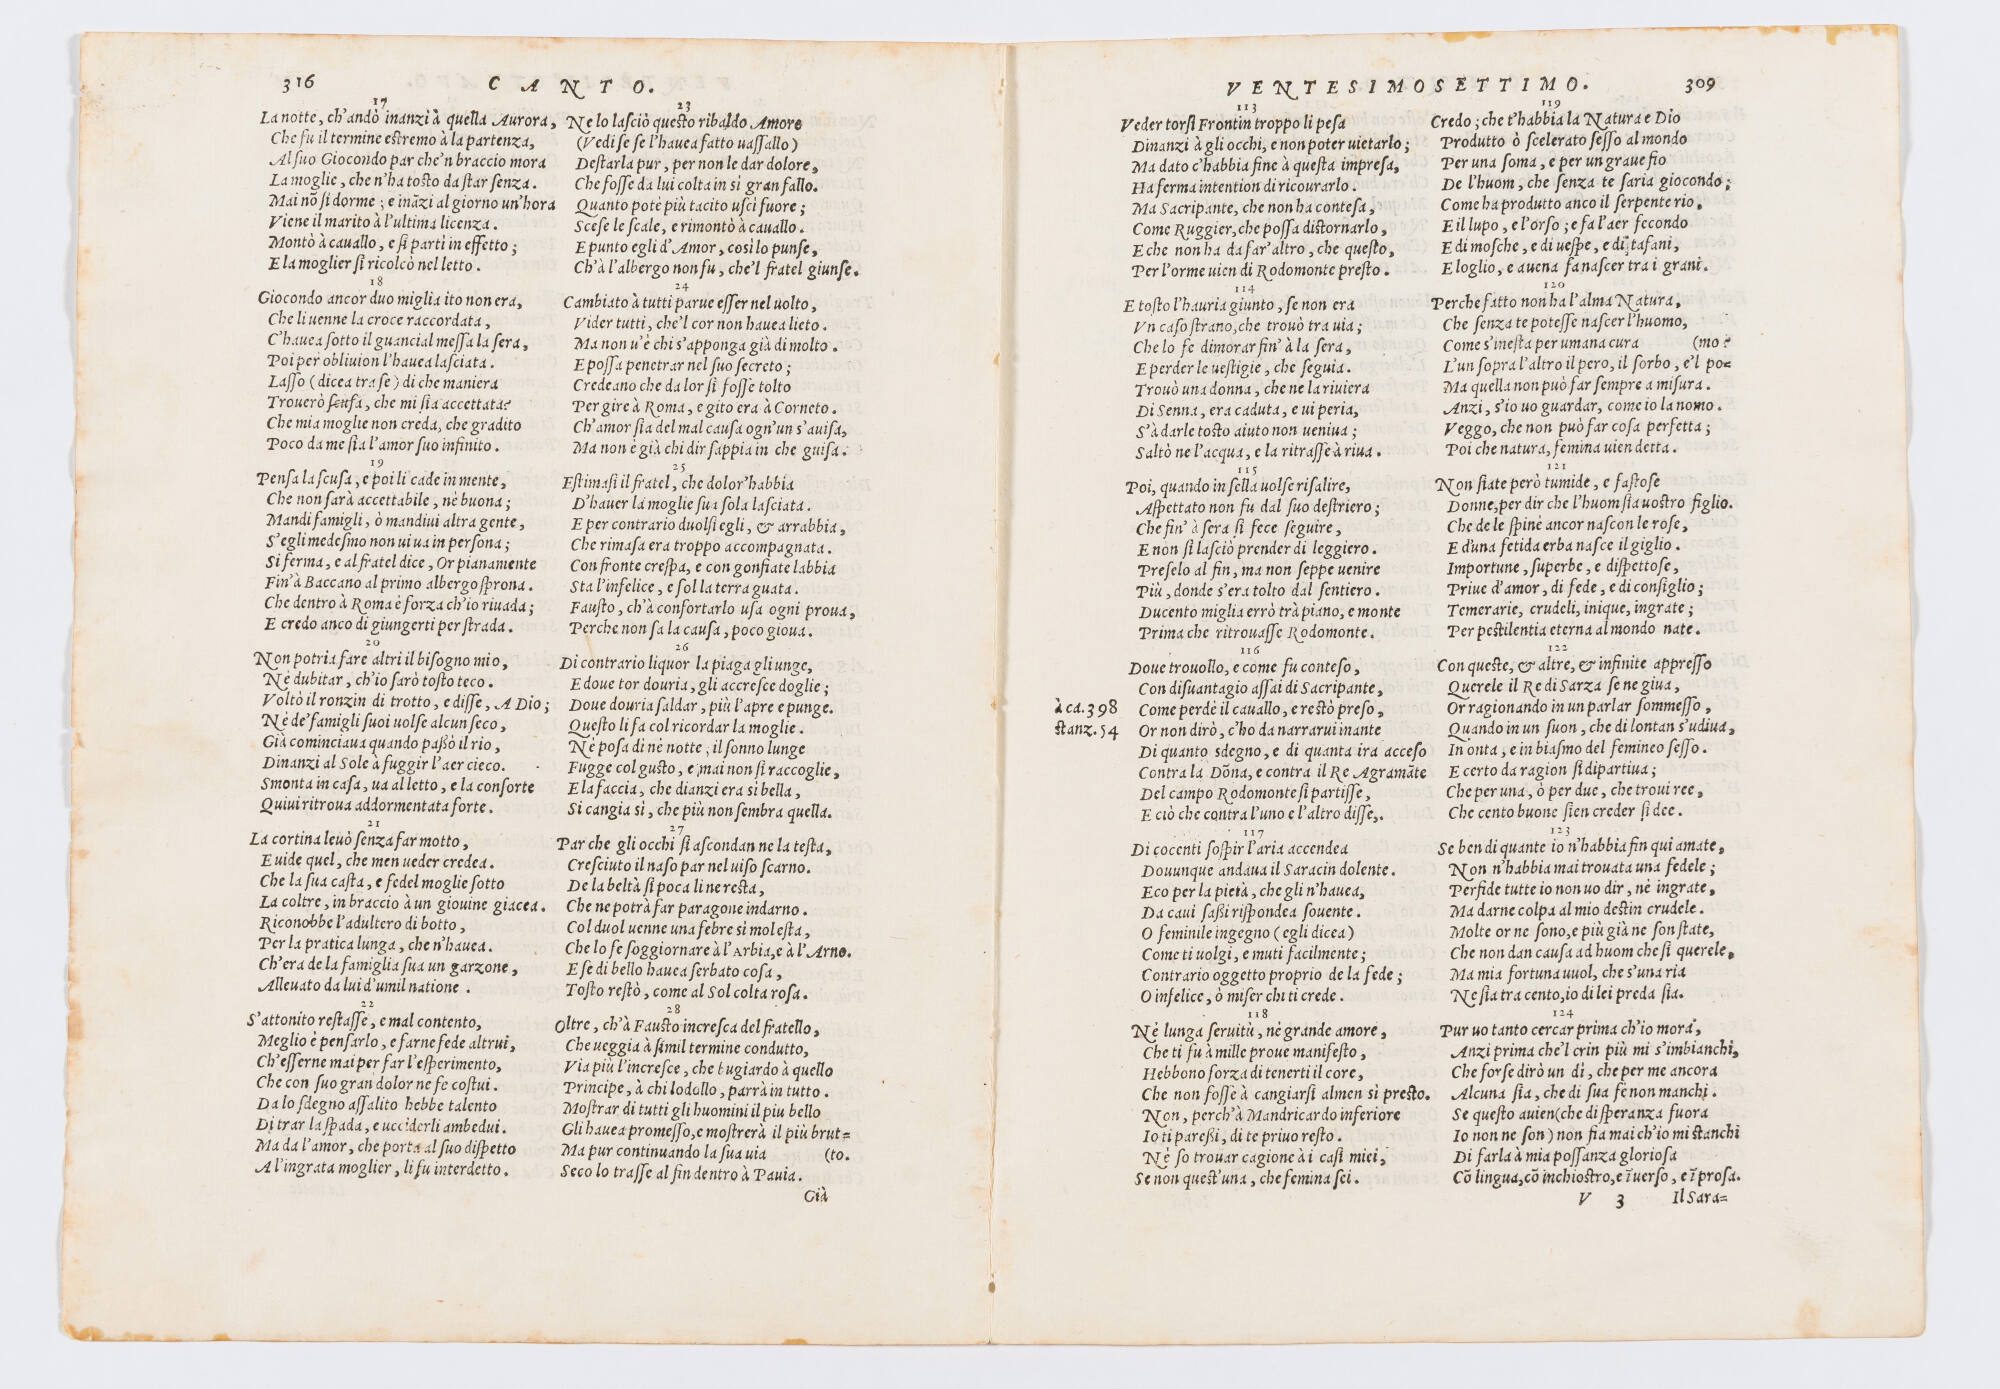 316
CANTO.
17
La notte, ch'andò inanzi à quella Aurora,
Che fu il termine estremo à la partenza,
Al suo Giocondo par che'n braccio mora
La moglie, che n'ha tosto da star senza.
Mai nõ si dorme; e inãzi al giorno un'hora
Viene il marito à l'ultima licenza.
Montò à cauallo, e si partì in effetto;
E la moglier si ricolcò nel letto.
18
Giocondo ancor duo miglia ito non era,
Che li uenne la croce raccordata,
C'hauea sotto il guancial messa la sera,
Poi per obliuion l'hauea lasciata.
Lasso (dicea tra se) di che maniera
Trouerò scusa, che mi sia accettata?
Che mia moglie non creda, che gradito
Poco da me sia l'amor suo infinito.
19
Pensa la scusa, e poi li cade in mente,
Che non sarà accettabile, nè buona;
Mandi famigli, ò mandiui altra gente,
S'egli medesmo non ui ua in persona;
Si ferma, e al fratel dice, Or pianamente
Fin'à Baccano al primo albergo sprona.
Che dentro à Roma è forza ch'io riuada;
E credo anco di giungerti per strada.
20
Non potria fare altri il bisogno mio,
Nè dubitar, ch'io sarò tosto teco.
Voltò il ronzin di trotto, e disse, A Dio;
Nè de' famigli suoi uolse alcun seco,
Già cominciaua quando passò il rio,
Dinanzi al Sole à fuggir l'aer cieco.
Smonta in casa, ua al letto, e la consorte
Quiui ritroua addormentata forte.
21
La cortina leuò senza far motto,
E uide quel, che men ueder credea.
Che la sua casta, e fedel moglie sotto
La coltre, in braccio à un giouine giacea.
Riconobbe l'adultero di botto,
Per la pratica lunga, che n'hauea.
Ch'era de la famiglia sua un garzone,
Alleuato da lui d'umil natione.
22
S'attonito restasse, e mal contento,
Meglio è pensarlo, e farne fede altrui,
Ch'esserne mai per far l'esperimento,
Che con suo gran dolor ne fe costui.
Da lo sdegno assalito hebbe talento
Di trar la spada, e ucciderli ambedui.
Ma da l'amor, che porta al suo dispetto
A l'ingrata moglier, li fu interdetto.
23
Ne lo lasciò questo ribaldo Amore
(Vedi se se l'hauea fatto uassallo)
Destarla pur, per non le dar dolore,
Che fosse da lui colta in sì gran fallo.
Quanto potè più tacito uscì fuore;
Scese le scale, e rimontò à cauallo.
E punto egli d'Amor, così lo punse,
Ch'à l'albergo non fu, che'l fratel giunse.
24
Cambiato à tutti parue esser nel uolto,
Vider tutti, che'l cor non hauea lieto.
Ma non u'è chi s'apponga già di molto.
E possa penetrar nel suo secreto;
Credeano che da lor si fosse tolto
Per gire à Roma, e gito era à Corneto.
Ch'amor sia del mal causa ogn'un s'auisa,
Ma non è già chi dir sappia in che guisa.
25
Estimasi il fratel, che dolor'habbia
D'hauer la moglie sua sola lasciata.
E per contrario duolsi egli, & arrabbia,
Che rimasa era troppo accompagnata.
Con fronte crespa, e con gonfiate labbia
Sta l'infelice, e sol la terra guata.
Fausto, ch'à confortarlo usa ogni proua,
Perche non sa la causa, poco gioua.
26
Di contrario liquor la piaga gli unge,
E doue tor douria, gli accresce doglie;
Doue douria saldar, più l'apre e punge.
Questo li fa col ricordar la moglie.
Nè posa dì nè notte; il sonno lunge
Fugge col gusto, e mai non si raccoglie,
E la faccia, che dianzi era sì bella,
Si cangia sì, che più non sembra quella.
27
Par che gli occhi si ascondan ne la testa,
Cresciuto il naso par nel uiso scarno.
De la beltà sì poca li ne resta,
Che ne potrà far paragone indarno.
Col duol uenne una febre sì molesta,
Che lo fe soggiornare à l'Arbia, e à l'Arno.
E se di bello hauea serbato cosa,
Tosto restò, come al Sol colta rosa.
28
Oltre, ch'à Fausto incresca del fratello,
Che ueggia à simil termine condutto,
Via più l'incresce, che bugiardo à quello
Principe, à chi lodollo, parrà in tutto.
Mostrar di tutti gli huomini il piu bello
Gli hauea promesso, e mostrerà il più brut=
Ma pur continuando la sua uia (to.
Seco lo trasse al fin dentro à Pauia.
Già
VENTESIMOSETTIMO.
309
113
Veder torsi Frontin troppo li pesa
Dinanzi à gli occhi, e non poter uietarlo;
Ma dato c'habbia fine à questa impresa,
Ha ferma intention di ricourarlo.
Ma Sacripante, che non ha contesa,
Come Ruggier, che possa distornarlo,
E che non ha da far'altro, che questo,
Per l'orme uien di Rodomonte presto.
114
E tosto l'hauria giunto, se non era
Vn caso strano, che trouò tra uia;
Che lo fe dimorar fin'à la sera,
E perder le uestigie, che seguia.
Trouò una donna, che ne la riuiera
Di Senna, era caduta, e ui peria,
S'à darle tosto aiuto non ueniua;
Saltò ne l'acqua, e la ritrasse à riua.
115
Poi, quando in sella uolse risalire,
Aspettato non fu dal suo destriero;
Che fin'à sera si fece seguire,
E non si lasciò prender di leggiero.
Preselo al fin, ma non seppe uenire
Più, donde s'era tolto dal sentiero.
Ducento miglia errò trà piano, e monte
Prima che ritrouasse Rodomonte.
116
Doue trouollo, e come fu conteso,
Con disuantagio assai di Sacripante,
à ca. 398
stanz. 54
Come perdè il cauallo, e restò preso,
Or non dirò, c'ho da narrarui inante
Di quanto sdegno, e di quanta ira acceso
Contra la Dõna, e contra il Re Agramãte
Del campo Rodomonte si partisse,
E ciò che contra l'uno e l'altro disse.
117
Di cocenti sospir l'aria accendea
Douunque andaua il Saracin dolente.
Eco per la pietà, che gli n'hauea,
Da caui sassi rispondea souente.
O feminile ingegno (egli dicea)
Come ti uolgi, e muti facilmente;
Contrario oggetto proprio de la fede;
O infelice, ò miser chi ti crede.
118
Nè lunga seruitù, nè grande amore,
Che ti fu à mille proue manifesto,
Hebbono forza di tenerti il core,
Che non fosse à cangiarsi almen sì presto.
Non, perch'à Mandricardo inferiore
Io ti paressi, di te priuo resto.
Nè so trouar cagione à i casi miei,
Se non quest'una, che femina sei.
119
Credo; che t'habbia la Natura e Dio
Produtto ò scelerato sesso al mondo
Per una soma, e per un graue fio
De l'huom, che senza te saria giocondo;
Come ha produtto anco il serpente rio,
E il lupo, e l'orso; e fa l'aer fecondo
E di mosche, e di uespe, e di tafani,
E loglio, e auena fa nascer tra i grani.
120
Perche fatto non ha l'alma Natura,
Che senza te potesse nascer l'huomo,
Come s'inesta per umana cura (mo?
L'un sopra l'altro il pero, il sorbo, e'l po=
Ma quella non può far sempre a misura.
Anzi, s'io uo guardar, come io la nomo.
Veggo, che non può far cosa perfetta;
Poi che natura, femina uien detta.
121
Non siate però tumide, e fastose
Donne, per dir che l'huom sia uostro figlio.
Che de le spine ancor nascon le rose,
E d'una fetida erba nasce il giglio.
Importune, superbe, e dispettose,
Priue d'amor, di fede, e di consiglio;
Temerarie, crudeli, inique, ingrate;
Per pestilentia eterna al mondo nate.
122
Con queste, & altre, & infinite appresso
Querele il Re di Sarza se ne giua,
Or ragionando in un parlar sommesso,
Quando in un suon, che di lontan s'udiua,
In onta, e in biasmo del femineo sesso.
E certo da ragion si dipartiua;
Che per una, ò per due, che troui ree,
Che cento buone sien creder si dee.
123
Se ben di quante io n'habbia fin qui amate,
Non n'habbia mai trouata una fedele;
Perfide tutte io non uo dir, nè ingrate,
Ma darne colpa al mio destin crudele.
Molte or ne sono, e più già ne son state,
Che non dan causa ad huom che si querele,
Ma mia fortuna uuol, che s'una ria
Ne sia tra cento, io di lei preda sia.
124
Pur uo tanto cercar prima ch'io mora,
Anzi prima che'l crin più mi s'imbianchi,
Che forse dirò un dì, che per me ancora
Alcuna sia, che di sua fè non manchi.
Se questo auien (che di speranza fuora
Io non ne son) non fia mai ch'io mi stanchi
Di farla à mia possanza gloriosa
Cõ lingua, cõ inchiostro, e ĩ uerso, e ĩ prosa.
V 3
Il Sara=